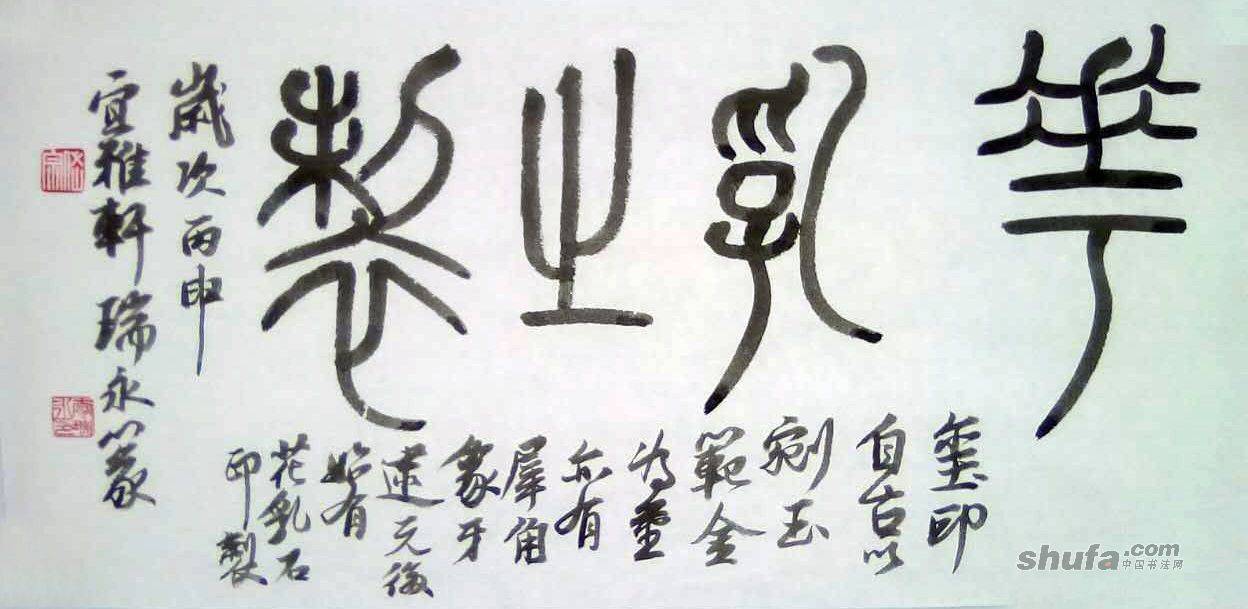 華乳之製
璽印
自古以
剜玉
範金
為璽
亦有
犀角
象牙
逮元後
始有
花乳石
印製
歲次丙申
宜雅軒瑞永篆
shufa.com
中国书法网